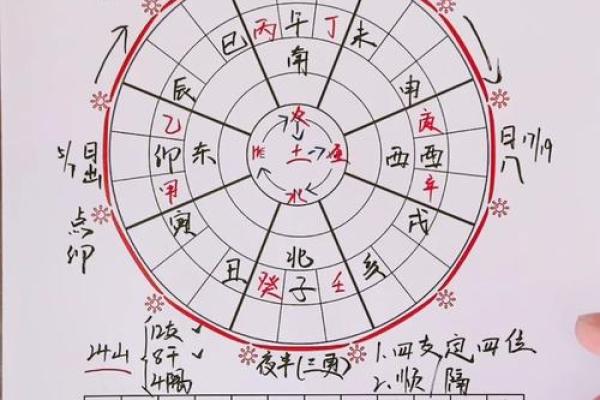 巳 丙 午 丁 未
南
辰 申
火
乙 庚
5/7 日出 卯 东 土 西 酉 日 17/19
甲 辛
水
点卯
寅 戌
北
丑 癸 子 壬 亥
24山
12支
8干
4隅
夜半(三更)
1.四支定四位
2.顺/隔